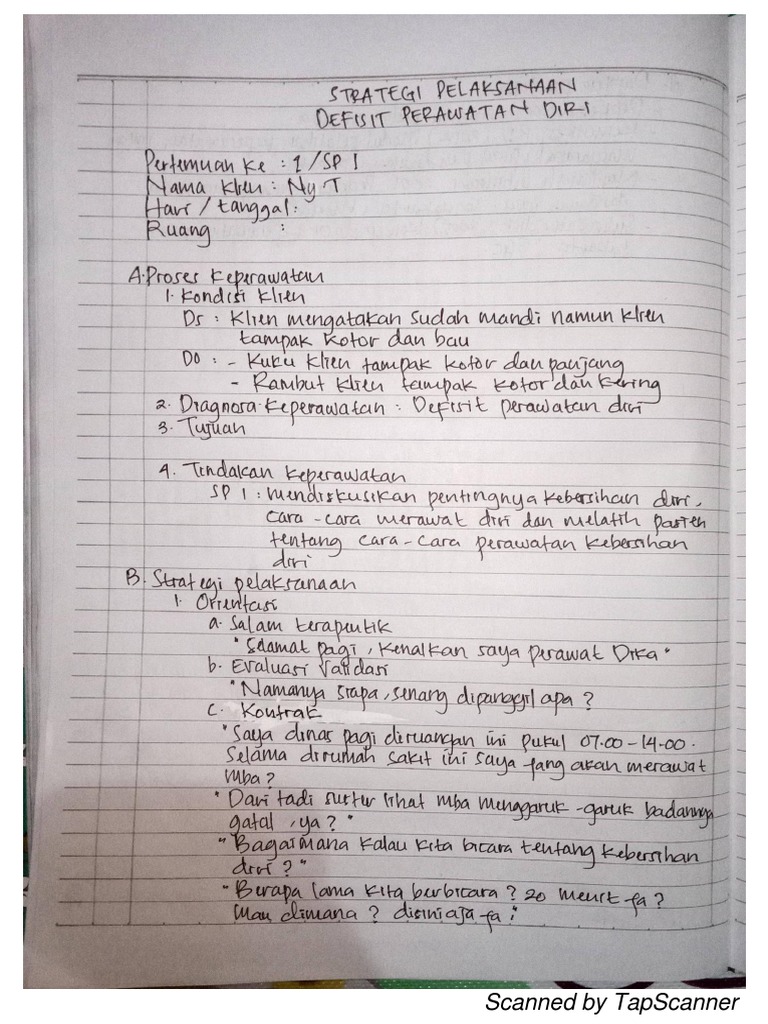 STRATEGI PELAKSANAAN
DEFISIT PERAWATAN DIRI
Pertemuan Ke : 1 / SP 1
Nama Klien : Ny T
Hari / tanggal :
Ruang :
A. Proses Keperawatan
1. Kondisi Klien
DS : Klien mengatakan sudah mandi namun Klien
tampak kotor dan bau
DO : - Kuku Klien tampak kotor dan panjang
- Rambut klien tampak kotor dan kering
2. Diagnosa Keperawatan : Defisit perawatan diri
3. Tujuan
4. Tindakan Keperawatan
SP 1 : mendiskusikan pentingnya kebersihan diri,
cara - cara merawat diri dan melatih pasien
tentang cara - cara perawatan kebersihan
diri
B. Strategi pelaksanaan
1. Orientasi
a. Salam terapeutik
" Selamat pagi, kenalkan saya perawat Dika "
b. Evaluasi Validasi
" Namanya siapa, senang dipanggil apa ?
c. Kontrak
" Saya dinas pagi diruangan ini pukul 07.00 - 14.00.
Selama dirumah sakit ini saya yang akan merawat
mba ?
" Dari tadi suster lihat mba menggaruk - garuk badannya
gatal , ya ? "
" Bagaimana kalau kita bicara tentang kebersihan
diri ? "
" Berapa lama kita berbicara ? 20 menit ya ?
Mau dimana ? disini aja ya ;
Scanned by TapScanner